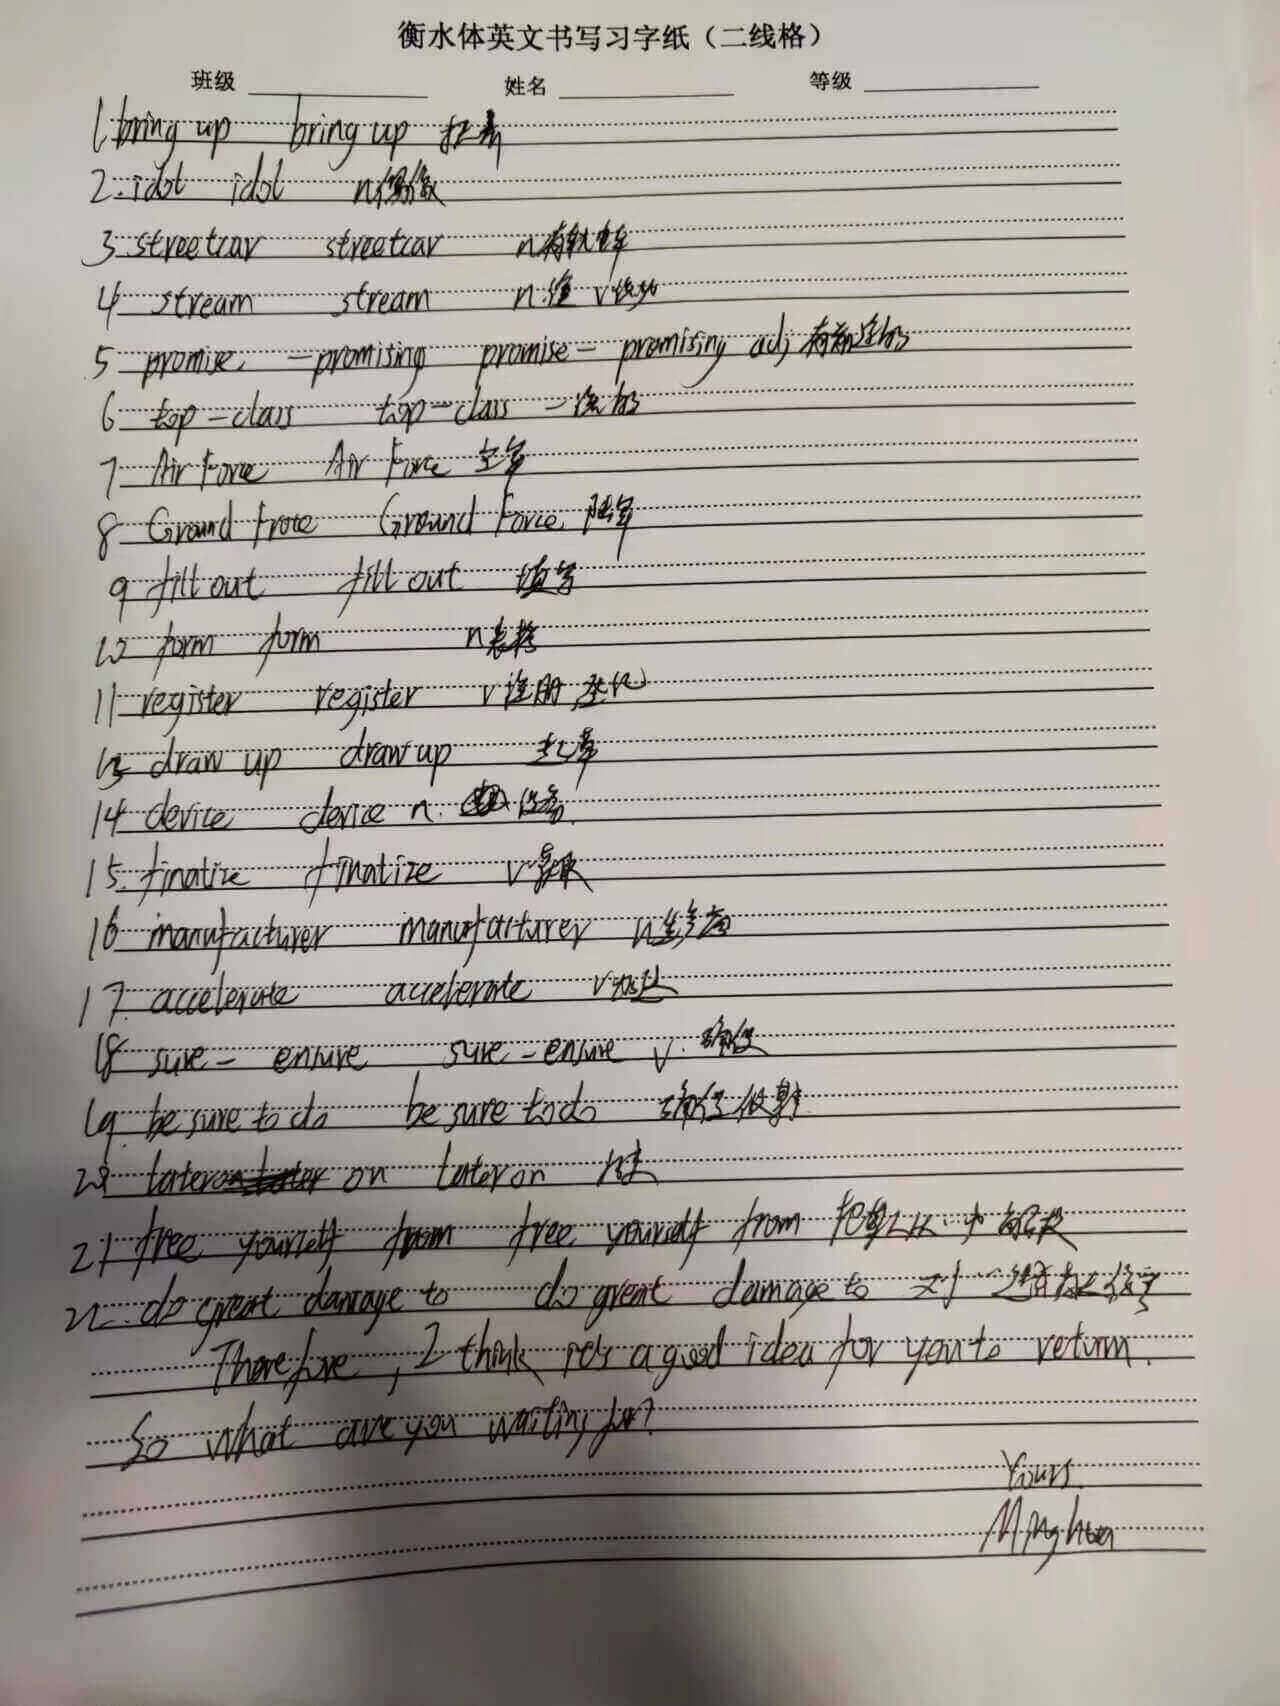 衡水体英文书写习字纸（二线格）
班级 姓名 等级
1. bring up bring up
2. idol idol n
3. streetcar streetcar n 有轨电车
4 stream stream n. v
5 promise - promising promise - promising adj 有前途的
6 top-class top-class 一流的
7 Air Force Air Force 空军
8 Ground Froce Ground Force 陆军
9 fill out fill out 填写
10 form form n 表格
11 register register v 注册 登记
13 draw up draw up 起草
14 device device n. 设备
15. finalize finalize v
16 manufacturer manufacturer n 生产商
17. accelerate accelerate v 加速
18 sure - ensure sure - ensure v. 确保
19. be sure to do be sure to do 确保做
20 later on later on 后来
21 free yourself from free yourself from 把 从…中解放
22. do great damage to do great damage to 对…造成
Therefore, I think it's a good idea for you to return.
So what are you waiting for?
Yours.
Minghua